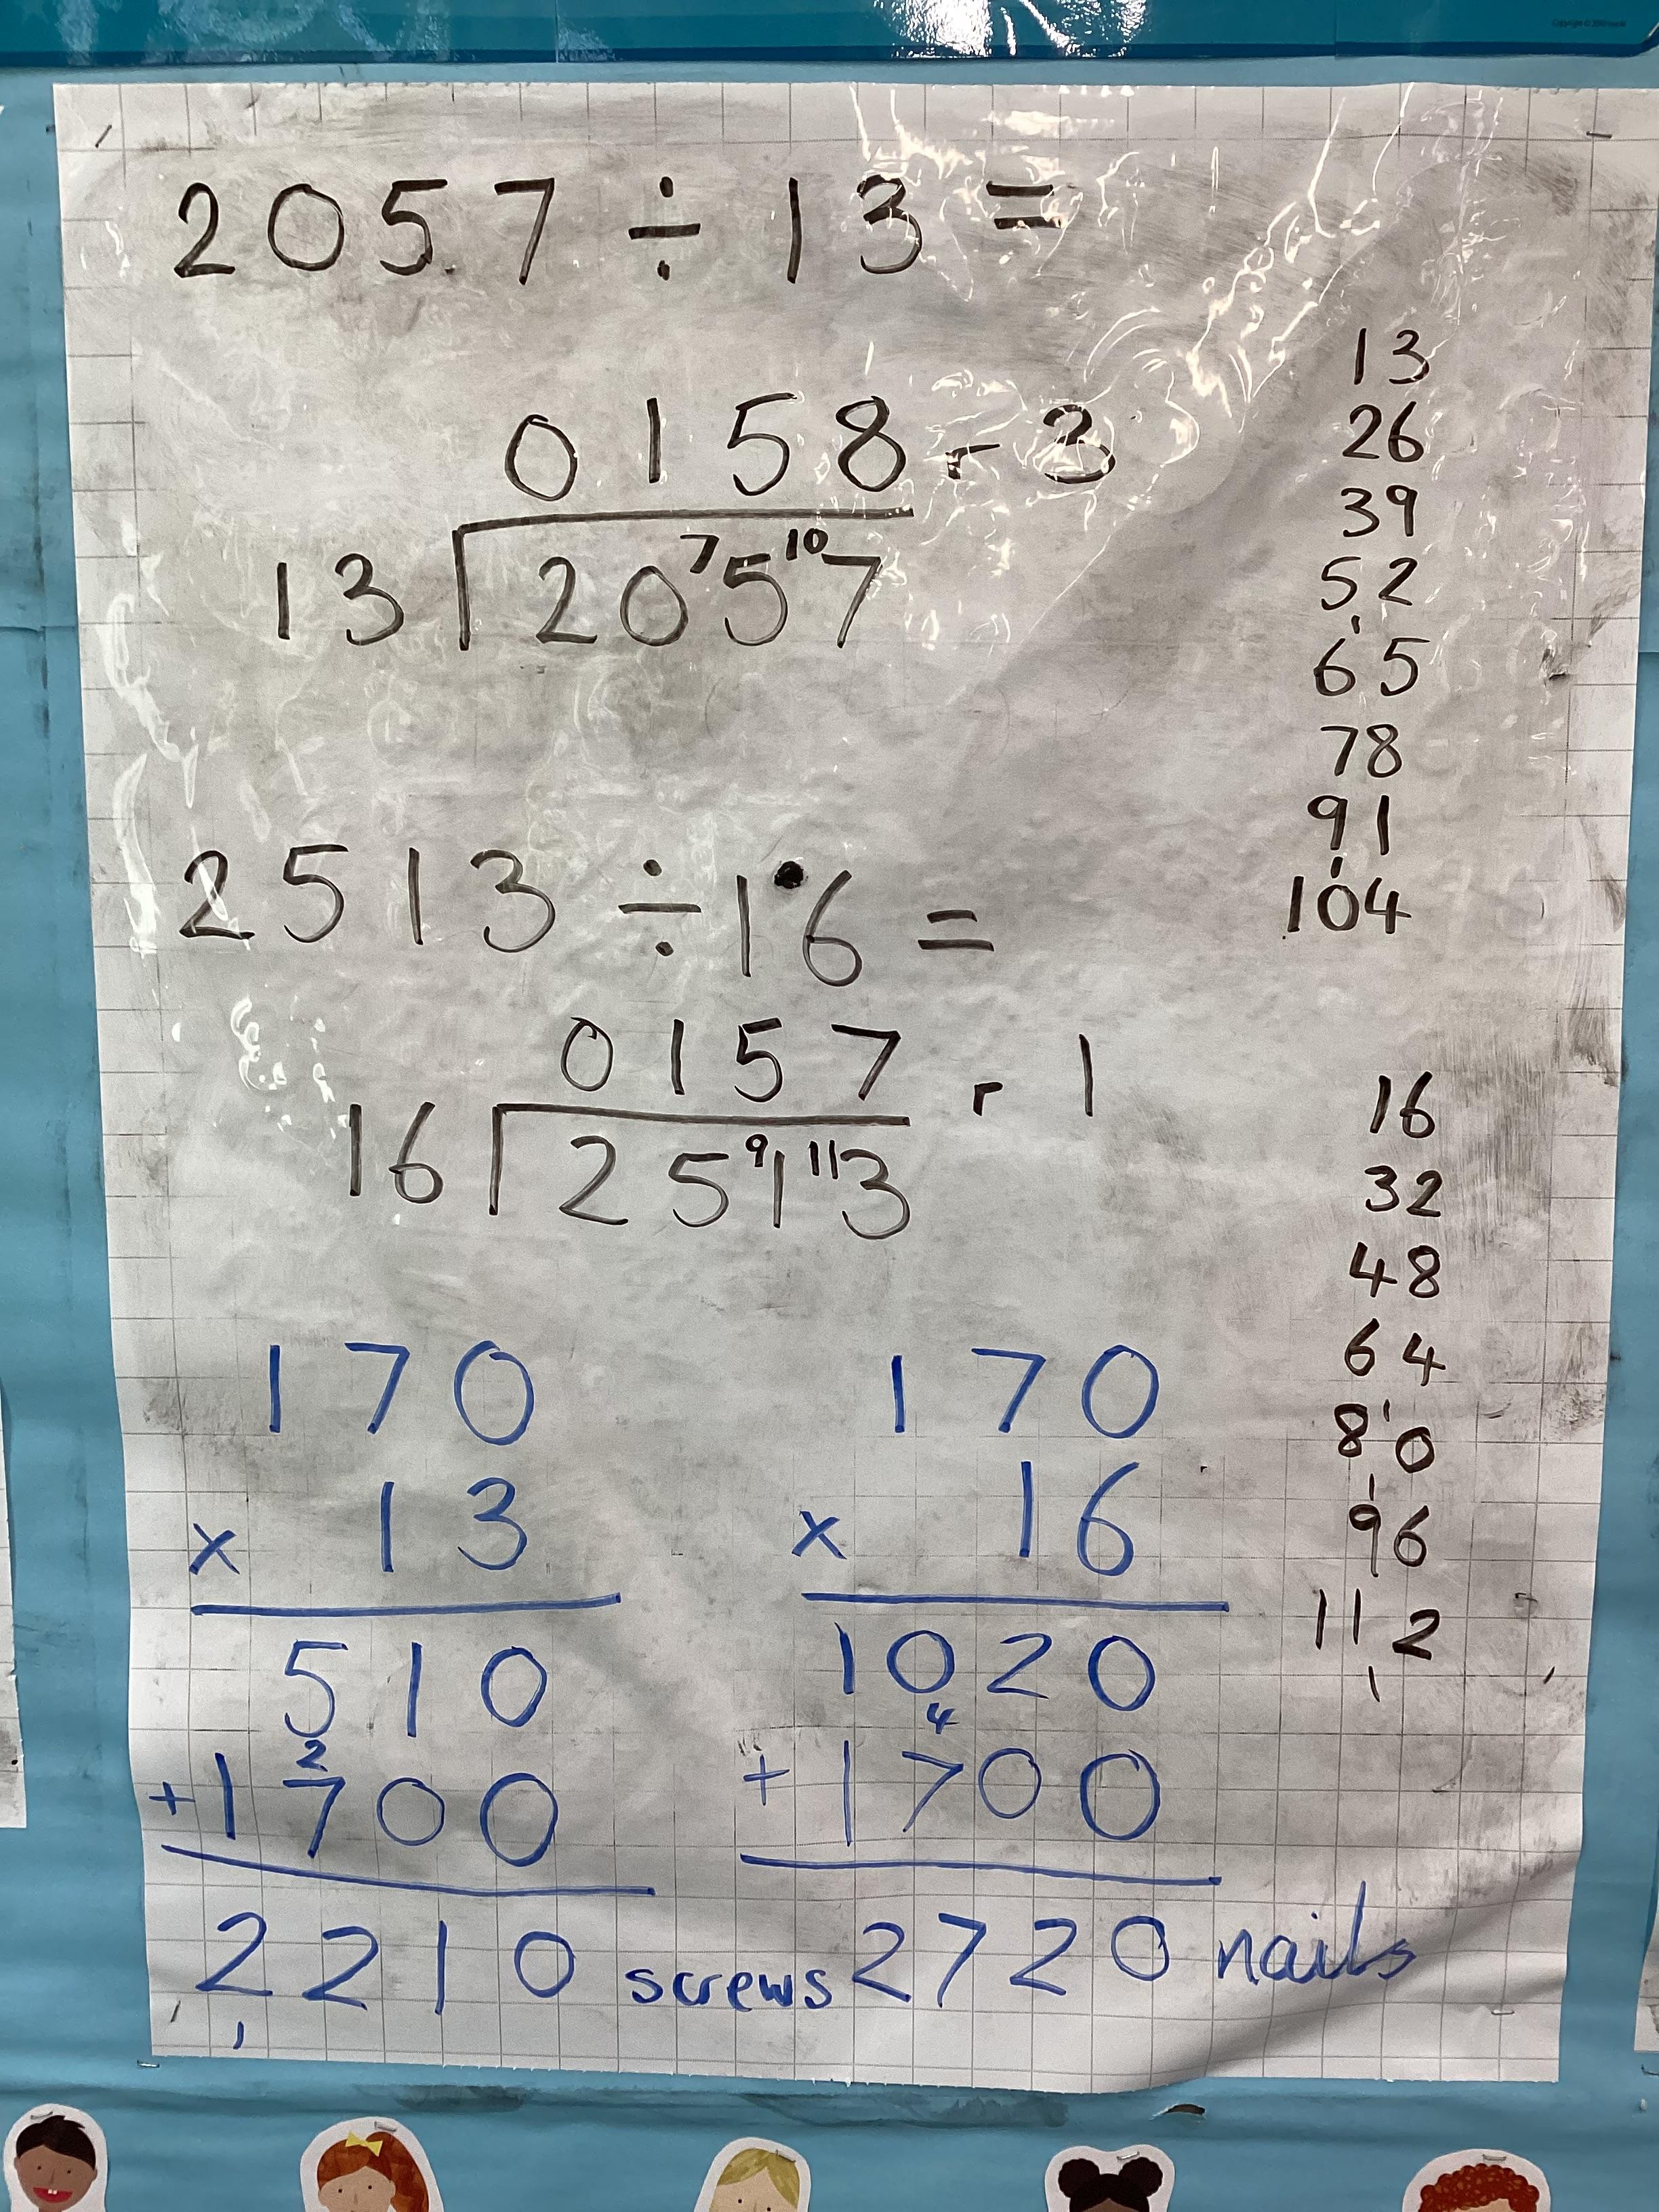 2057 ÷ 13 =
0158 r 3
13 2057
7 10
13
26
39
52
65
78
91
104
2513 ÷ 16 =
0157 r 1
16 2513
9 11
16
32
48
64
80
96
112
170
x 13
510
2
+1700
2210 screws
1
170
x 16
1020
4
+1700
2720 nails